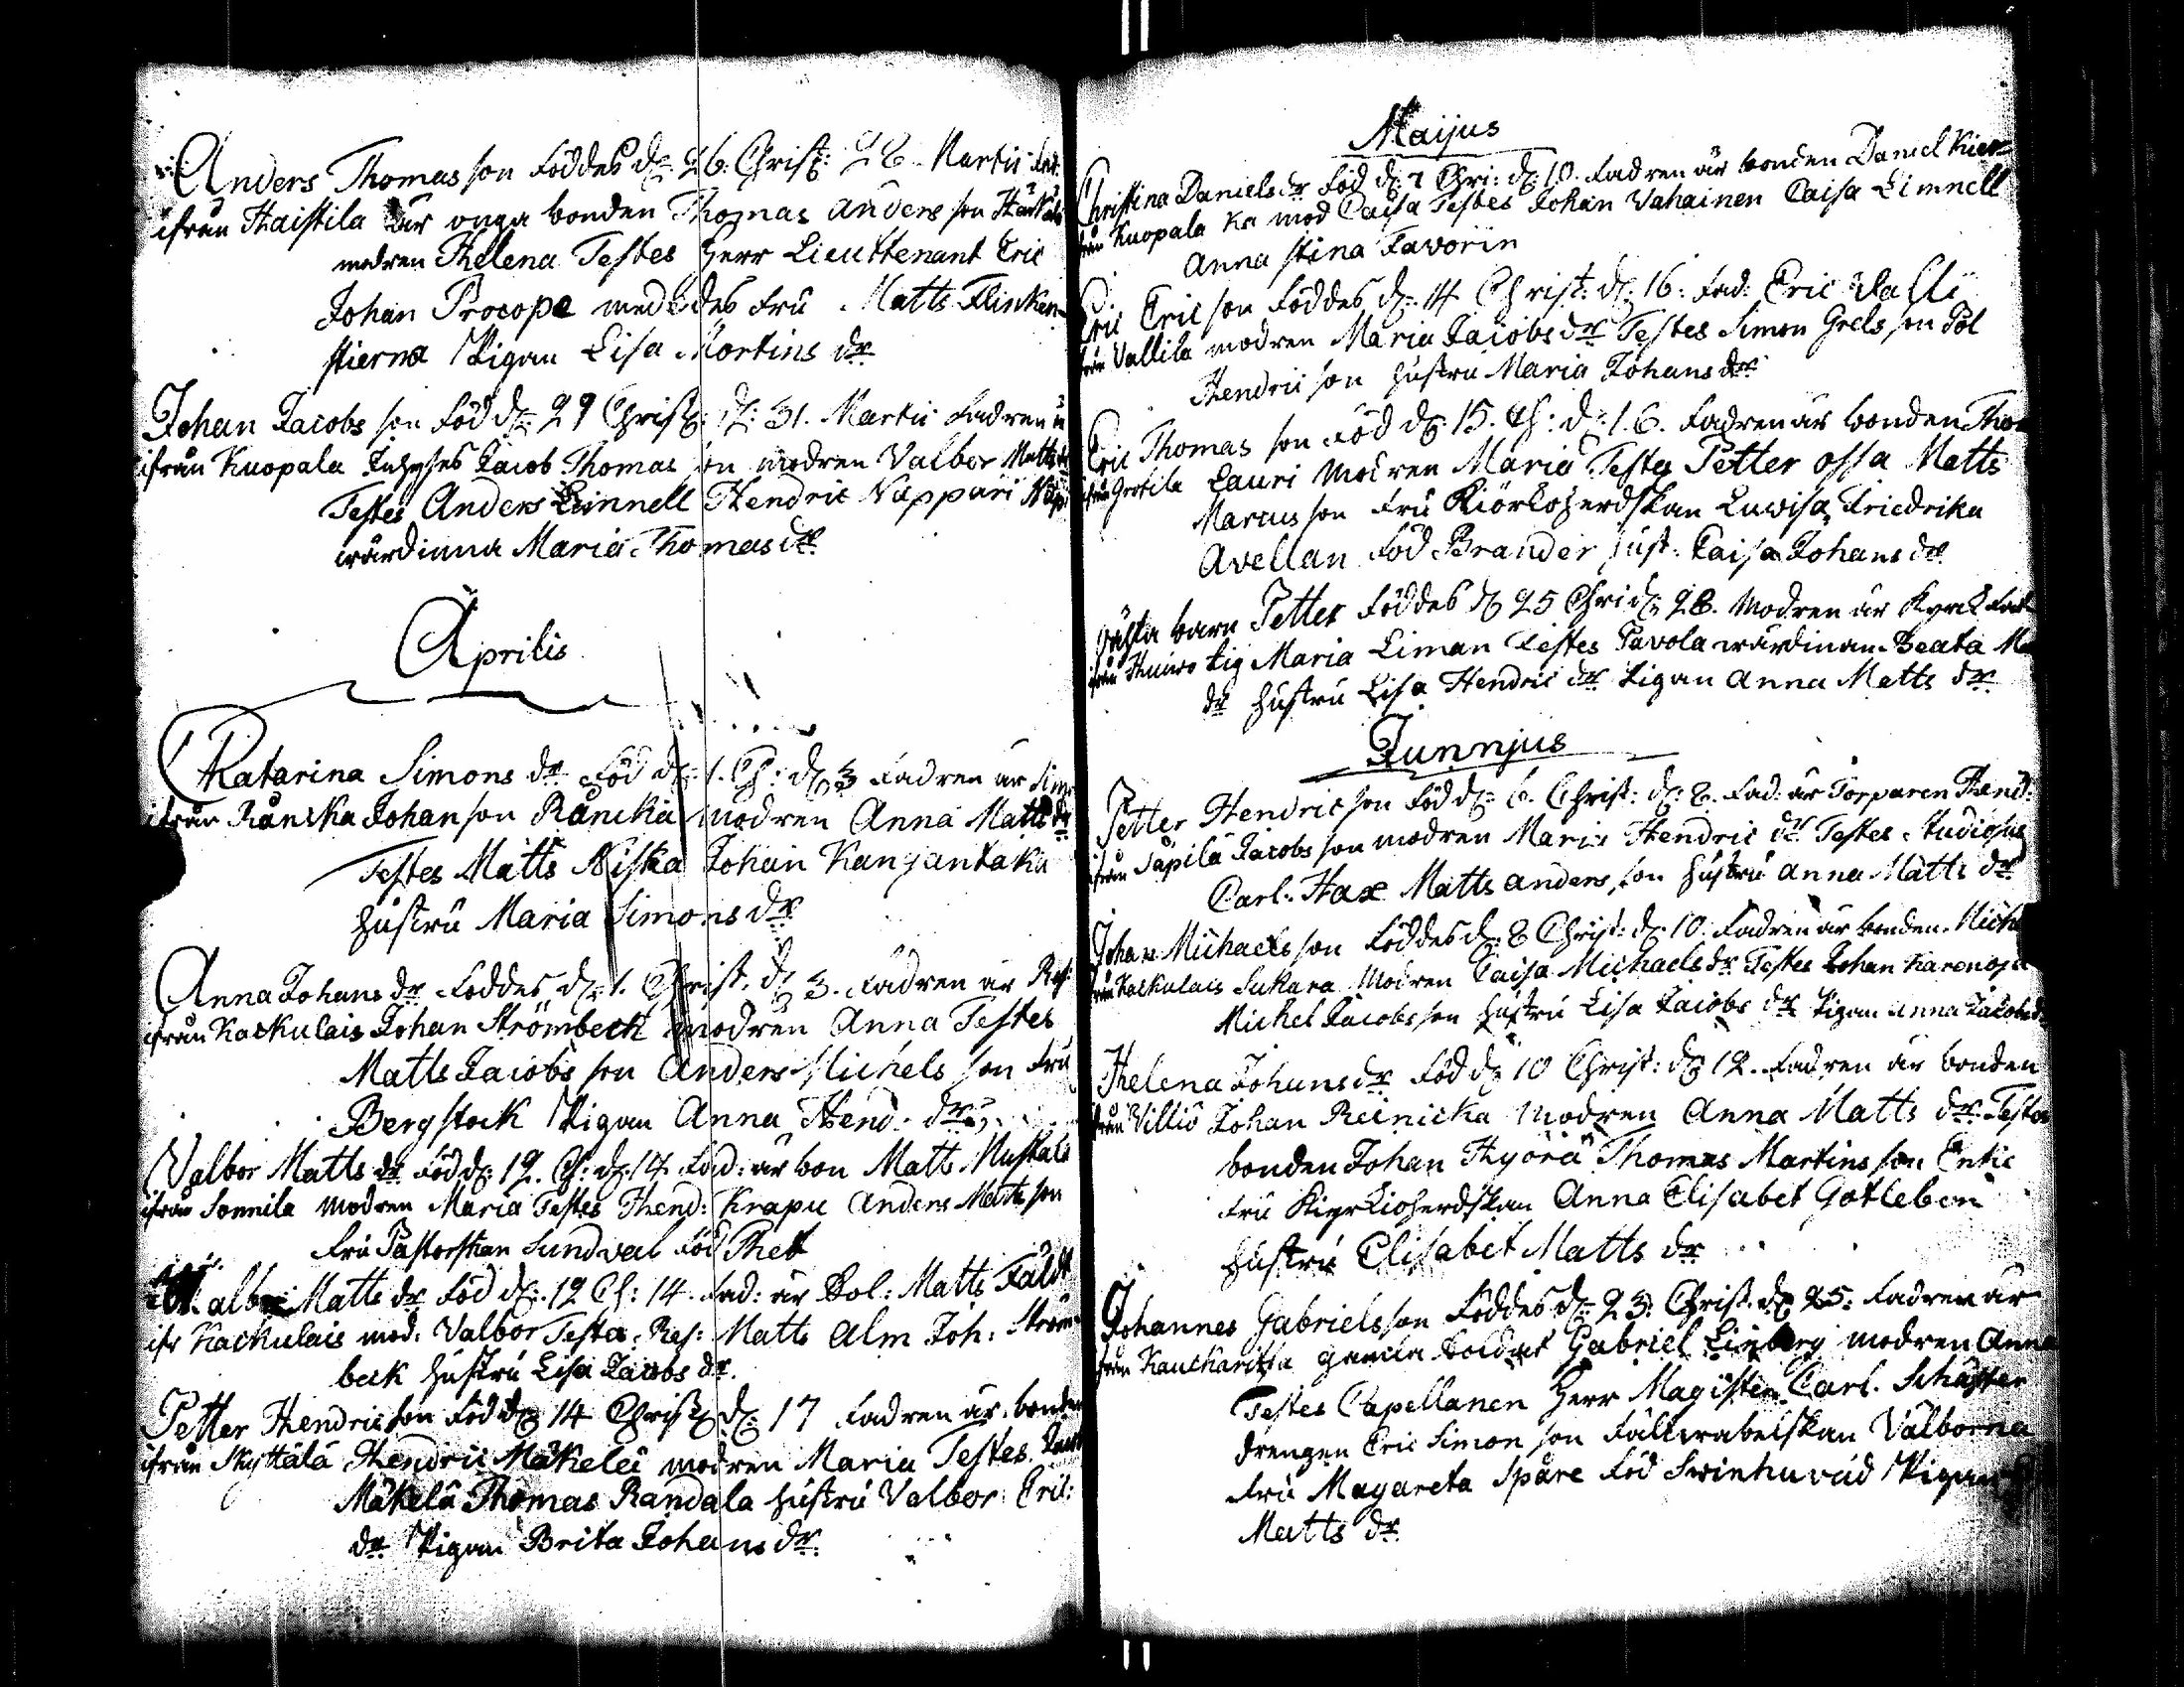 Anders Thomas son föddes d: 26. Christ: 28. Martii fad:
ifrån Haistila är unga bonden Thomas Anders son Härkälä
modren Helena Testes Herr Lieuttenant Eric
Johan Procope med des fru Matts Flinken
stierna Pigan Lisa Mortins dr
Johan Jacobs son född d: 29 Christ: d: 31. Martii Fadren ä
ifrån Kuopala Inhyses Jacob Thomas son modren Valbor Matts dr
Testes Anders Linnell Hendric Näppäri
wärdinna Maria Thomas dr
Aprilis
Katarina Simons dr föd d: 1. Ch: d: 3 Fadren är Simo
ifrån Rånska Johan son Råncka modren Anna Matts dr
Testes Matts Niska Johan Kanjankaka
hustru Maria Simons dr
Anna Johans dr föddes d: 1. Christ. d: 3. Fadren är Res:
ifrån Kaskulais Johan Strömbeck modren Anna Testes
Matts Jacobs son Anders Michels son fru
Bergstock Pigan Anna Hend: dr
Valbor Matts dr föd d: 12. Ch: d: 14. Fad: är bon Matts Mustala
ifrån Sonnila modren Maria Testes Hend: Krapu Anders Matts son
fru Pastorskan Sundval föd Thet
Valbor Matts dr föd d: 12 Ch: 14. Fad: är Sol: Matts Fäldt
ifr Kaskulais mod: Valbor Testes Res: Matts Alm Joh: Ström
beck hustru Lisa Jacobs dr
Petter Hendric son föd d: 14 Christ d: 17 Fadren är bonden
ifrån Skyttälä Hendric Mäkelä modren Maria Testes
Mäkelä Thomas Randala hustru Valbor Eric:
dr Pigan Brita Johans dr
Maijus
Christina Daniels dr föd d: 7 Chri: d: 10. Fadren är bonden Daniel Kier
från Kuopala ka mod Caisa Testes Johan Vahainen Caisa Limnell
Anna Stina Favorin
Eric Eric son föddes d: 14 Christ: d: 16: Fad: Eric Valli
från Vallila modren Maria Jacobs dr Testes Simon Grels son Pål
Hendric son hustru Maria Johans dr
Eric Thomas son föd d: 15. Ch: d: 16. Fadren är bonden Thom
ifrån Grotila Lauri Modren Maria Testes Petter Ossa Matts
Marcus son fru Kiörkoherdskan Luwisa Friedrika
Avellan föd Brander hust: Caisa Johans dr
oächta barn Petter föddes d: 25 Chri d: 28. Modren är
ifrån pig Maria Liman Testes Pavola wärdinan Beata Ma
dr hustru Lisa Hendric dr Pigan Anna Matts dr
Junnjus
Petter Hendric son föd d: 6. Christ: d: 8. Fad: är Torparen Hend:
ifrån Säpilä Jacobs son modren Maria Hendric dr Testes Studiosus
Carl Hax Matts Anders son hustru Anna Matts dr
Johan Michaels son föddes d: 8 Christ: d: 10. Fadren är bonden Micha
från Kaskulais Sukara Modren Caisa Michaels dr Testes Johan Karonoja
Michel Jacobs son hustru Lisa Jacobs dr Pigan Anna Jacobs dr
Helena Johans dr föd d: 10 Christ: d: 12. Fadren är bonden
från Villiö Johan Reinicka modren Anna Matts dr. Testes
bonden Johan Hyörä Thomas Martins son Enkic
fru Kiyrkioherdskan Anna Elisabet Gotleben
hustru Elisabet Matts dr
Johannes Gabriels son föddes d: 23: Christ. d: 25: Fadren är
från Kauckaritta gamla Soldat Gabriel Linberg modren Anna
Testes Capellanen Herr Magister Carl. Schäfter
drengen Eric Simon son Fältwäbelskan Valborna
fru Magareta Späre föd Swinhuvud Pigan
Matts dr